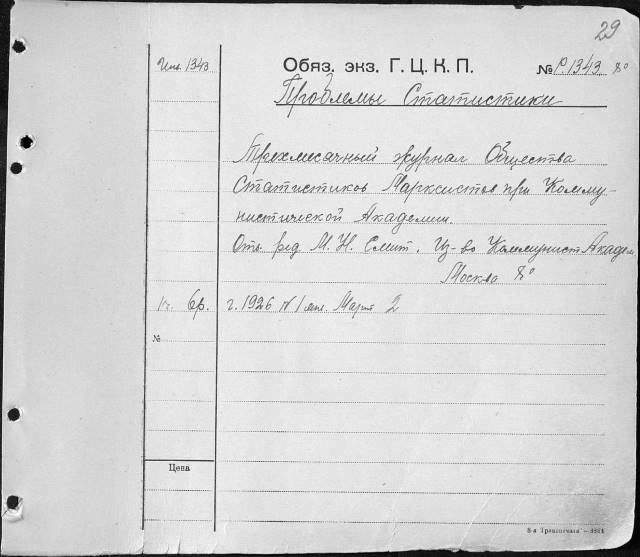 29
Инв. 1343
Обяз. экз. Г. Ц. К. П. № Р.1343 8º
Проблемы Статистики
Трехмесячный журнал Общества
Статистиков Марксистов при Комму-
нистической Академии.
Отв ред М. Н. Смит. Из-во Коммунист Академ.
Москва 8º
6р. г. 1926 N 1 янв. Март 2
№
Цена